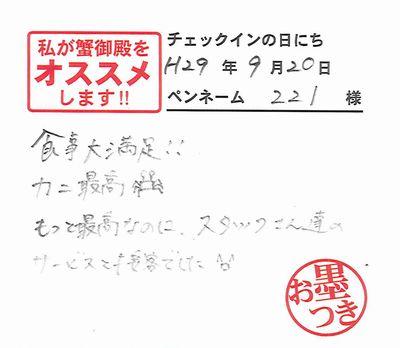 私が蟹御殿を
オススメ
します!!
チェックインの日にち
H29 年 9 月 20 日
ペンネーム 221 様
食事大満足!!
カニ最高
もっと最高なのに、スタッフさん達の
サービスと接客でした
お墨つき